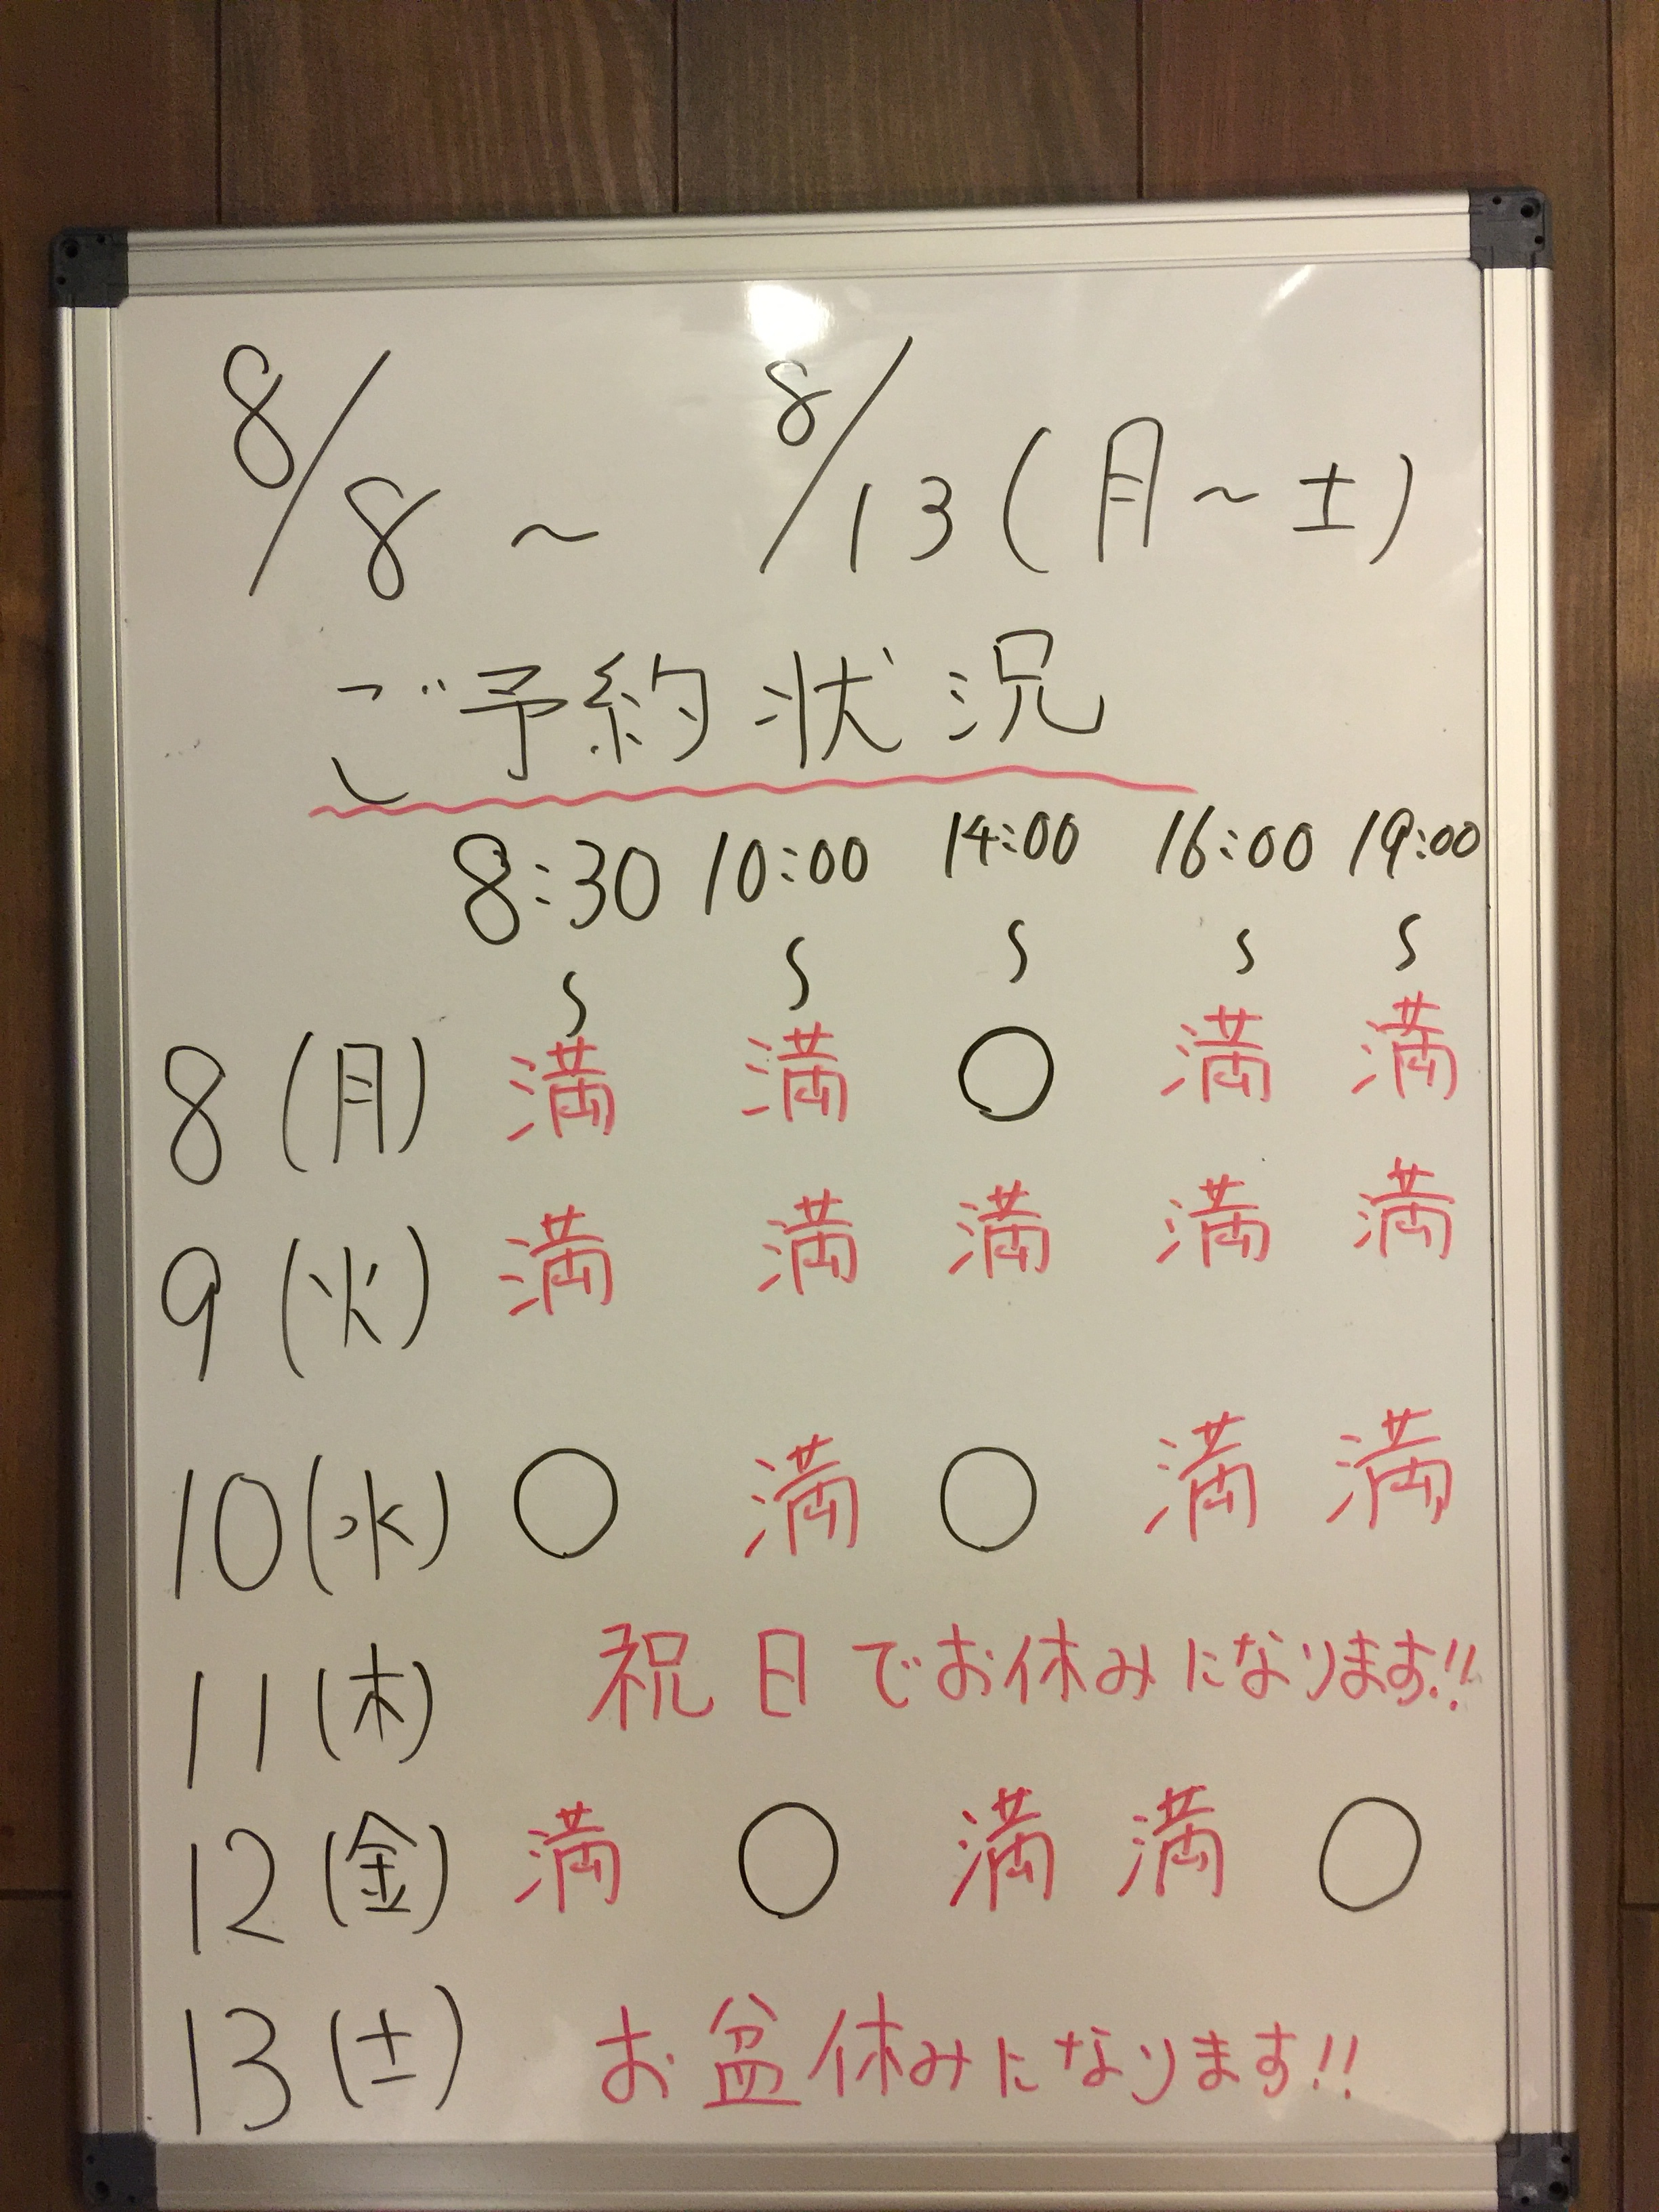 8/8 ~ 8/13 (月~土)
ご予約状況
8:30 10:00 14:00 16:00 19:00
〜 〜 〜 〜 〜
8 (月) 満 満 ○ 満 満
9 (火) 満 満 満 満 満
10 (水) ○ 満 ○ 満 満
11 (木) 祝日でお休みになります!!
12 (金) 満 ○ 満 満 ○
13 (土) お盆休みになります!!